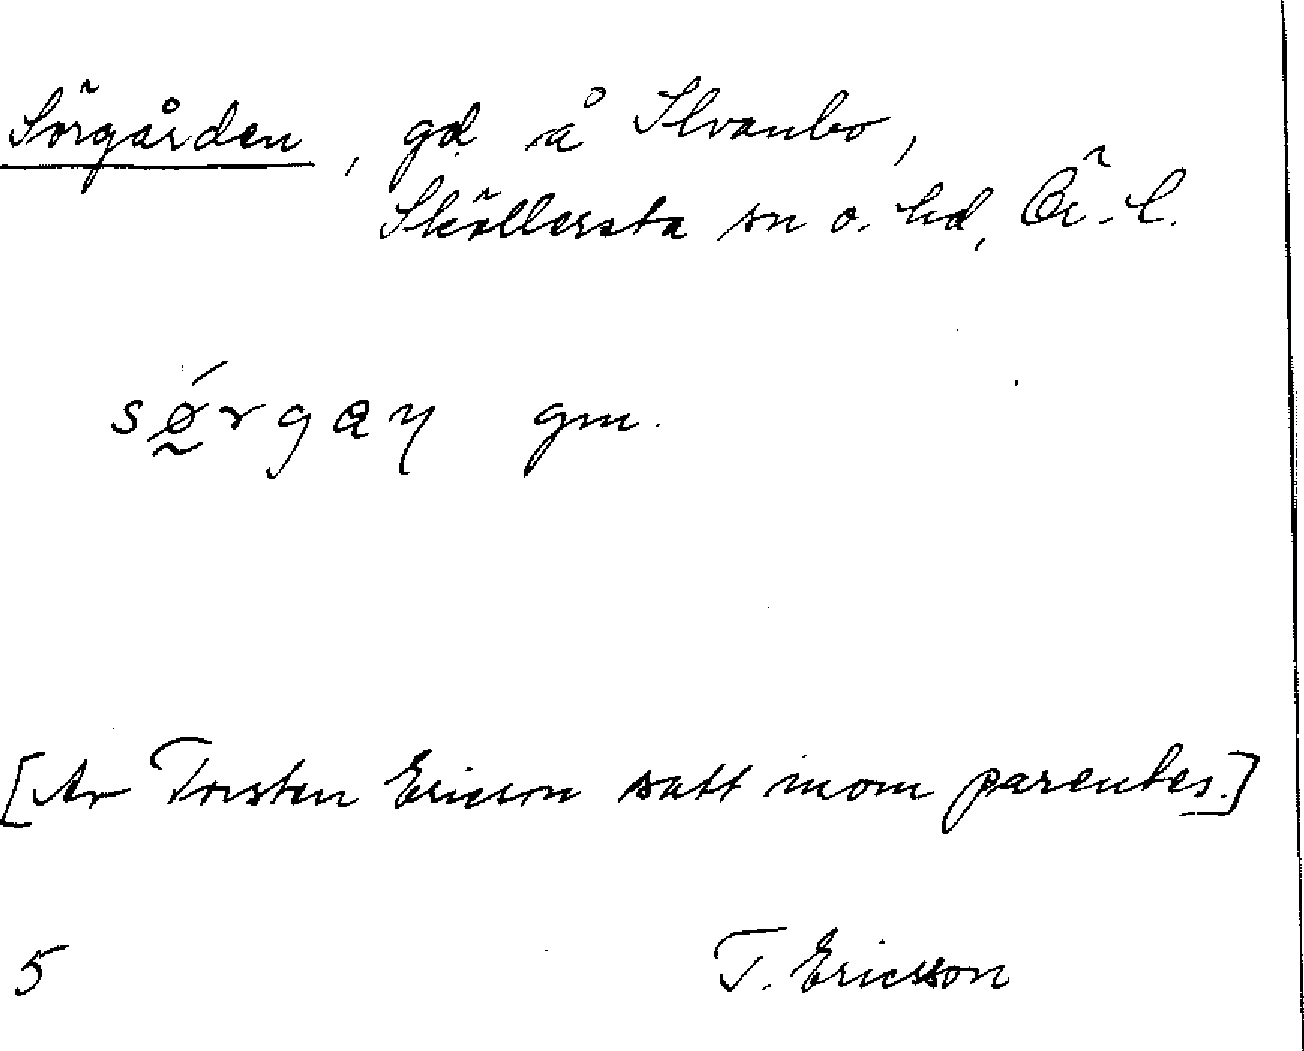 Sörgården, gd å Ilvanbo,
Sköllersta sn o. hd, Ör. l.
gm.
[Av Torsten Ericson satt inom parentes.]
5 T. Ericsson